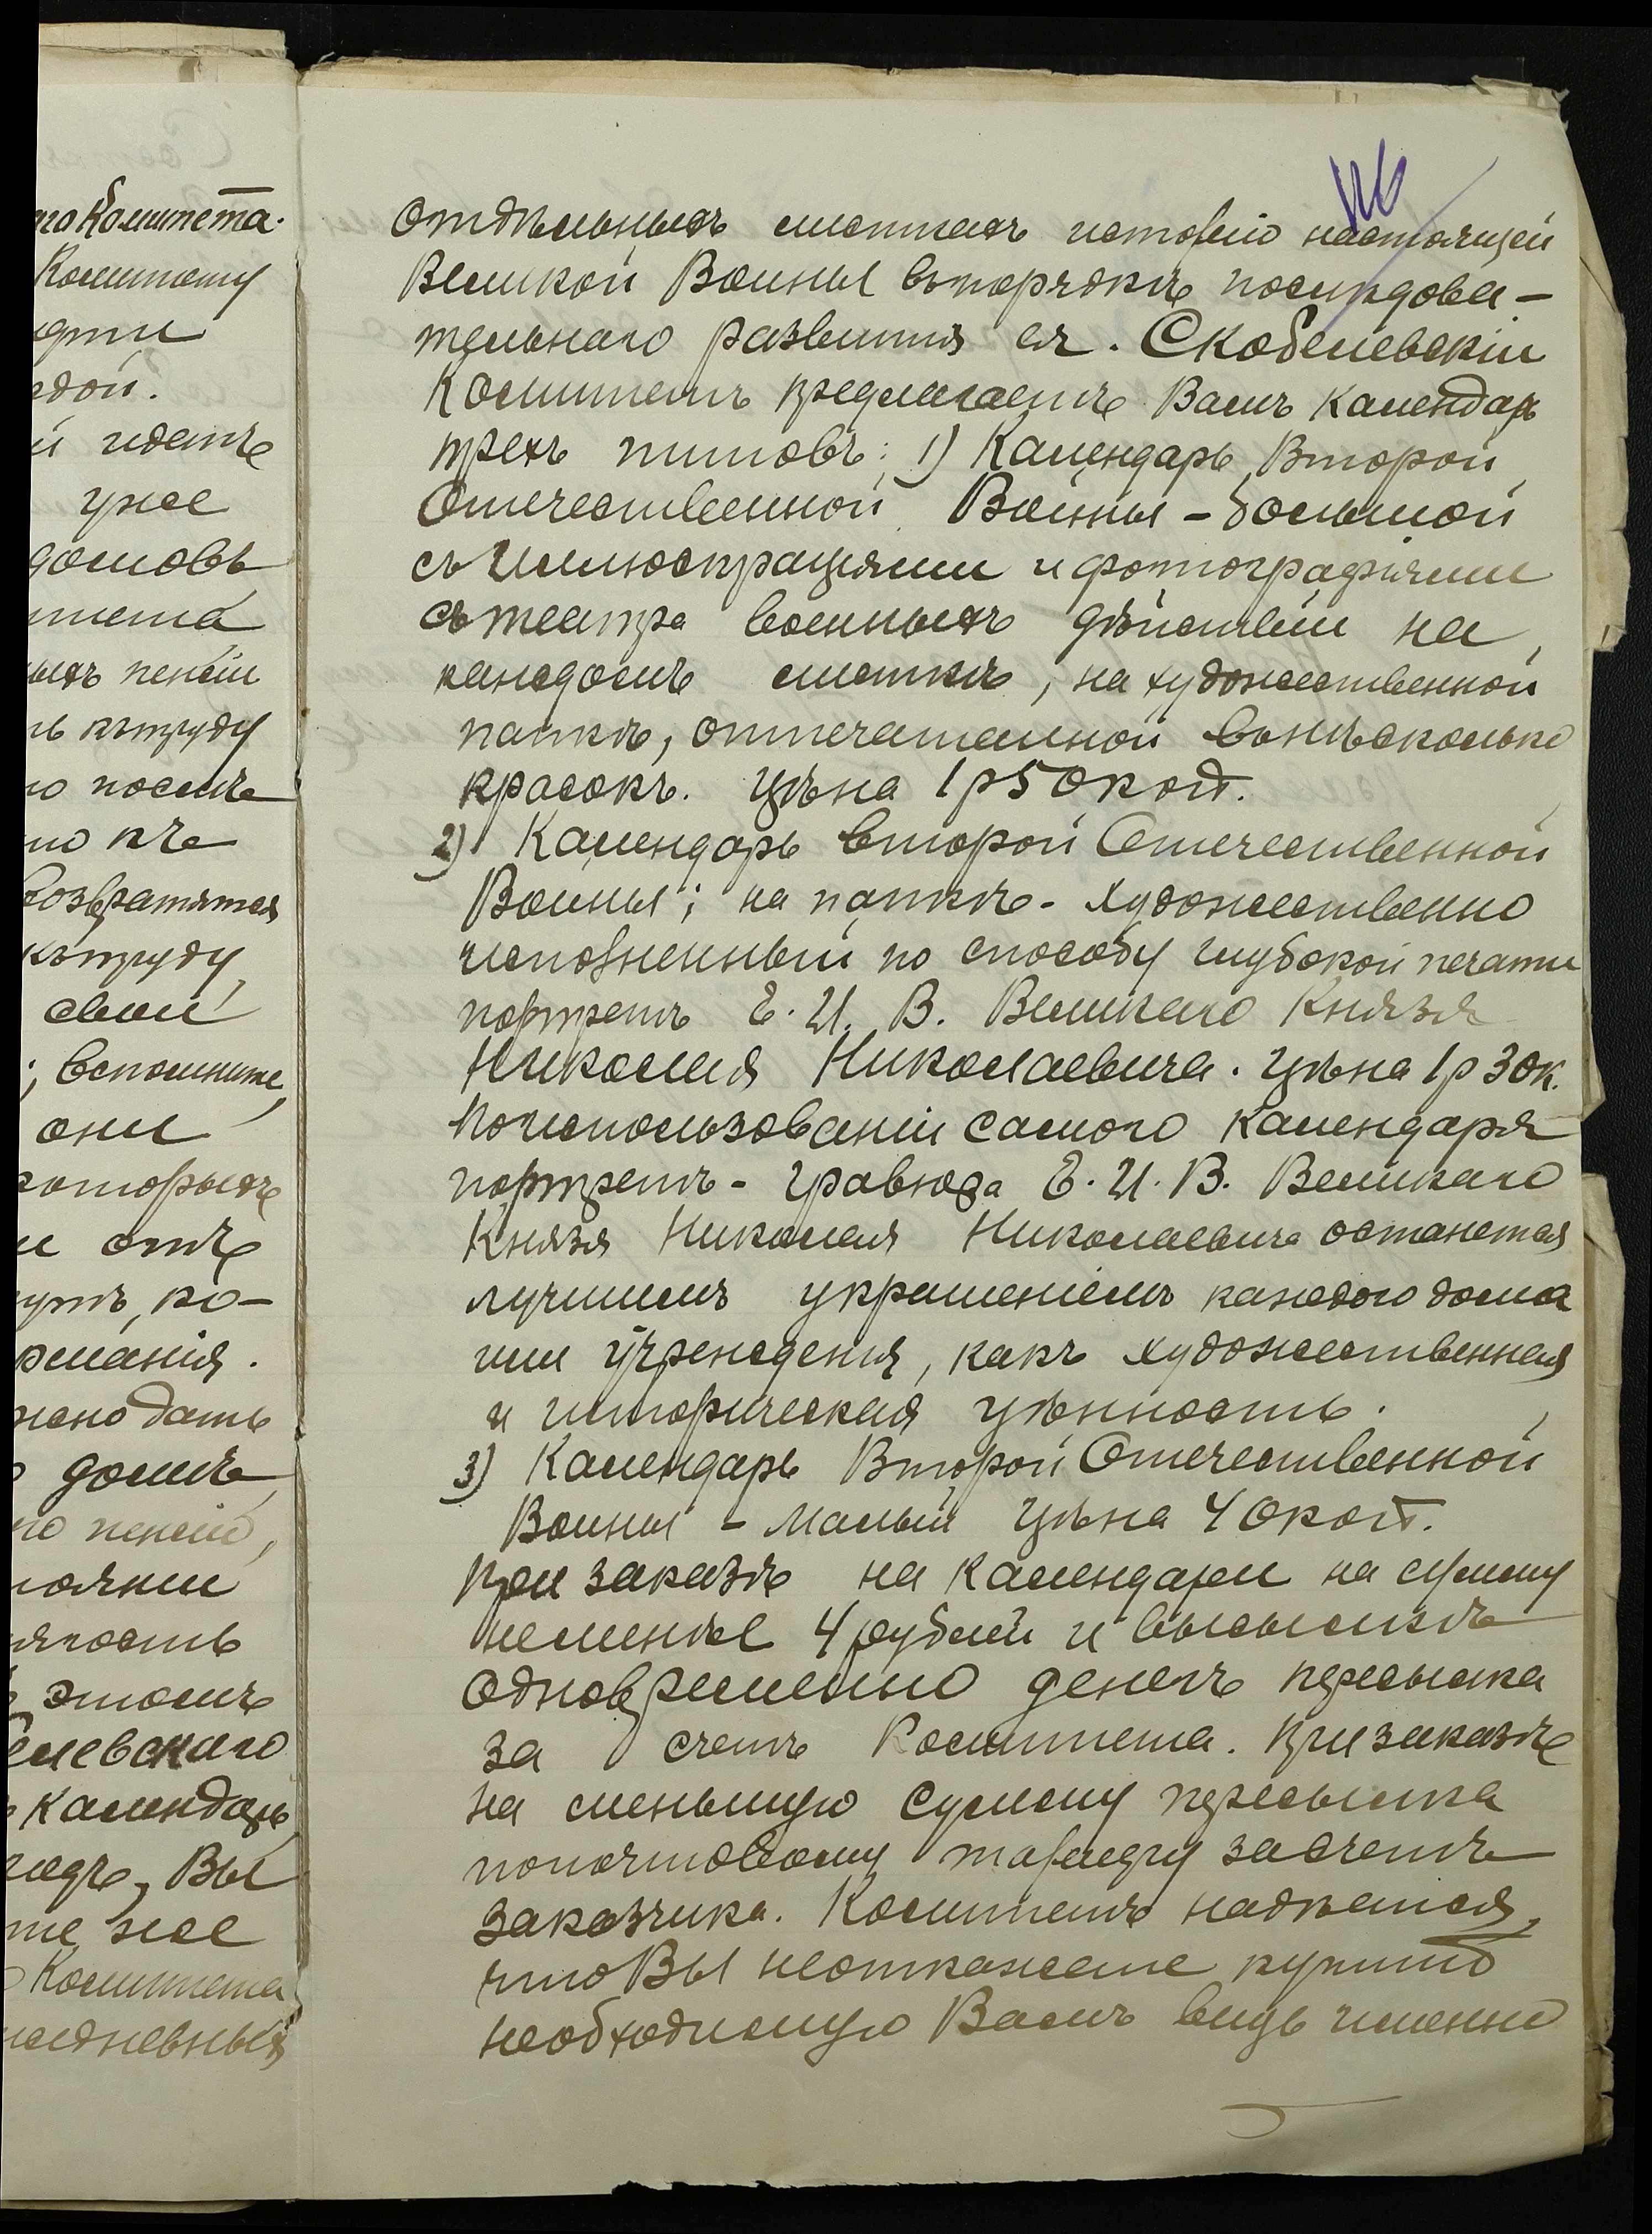 го Комитета.
Комитету
рдой.
й идетъ
уже
домовъ
митета
ыхъ пенсій
ь къ труду
о послѣ
но къ
возвратятся
къ труду,
свои
; вспомните,
они
которыхъ
и отъ
утъ, ко-
рманія.
жно дать
домъ
по пенсіи,
тягость
этомъ
елевскаго
Календарь
Вы
те же
Комитета
недневныя
отдѣльныхъ листкахъ исторію настоящей
Великой Войны въ порядкѣ послѣдова-
тельнаго развитія ея. Скобелевскій
Комитетъ предлагаетъ Вамъ Календарь
трехъ типовъ: 1) Календарь Второй
Отечественной Войны - большой
съ иллюстраціями и фотографіями
съ театра военныхъ дѣйствій на
каждомъ листкѣ, на художественной
папкѣ, отпечатанной въ нѣсколько
красокъ. Цѣна 1 р 50 коп.
2) Календарь второй Отечественной
Войны; на папкѣ - художественно
исполненный по способу глубокой печати
портретъ Е. И. В. Великаго Князя
Николая Николаевича. Цѣна 1 р 30 к.
По использованіи самого календаря
портретъ - гравюра Е. И. В. Великаго
Князя Николая Николаевича останется
лучшимъ украшеніемъ каждого дома
или учрежденія, какъ художественная
и историческая цѣнность.
3) Календарь Второй Отечественной
Войны - малый Цѣна 40 коп.
При заказѣ на календари на сумму
не менѣе 4 рублей и высылкѣ
одновременно денегъ пересылка
за счетъ Комитета. При заказѣ
на меньшую сумму пересылка
по почтовому тарифу за счетъ
заказчика. Комитетъ надѣется,
что Вы не откажете купить
необходимую Вамъ вещь именно